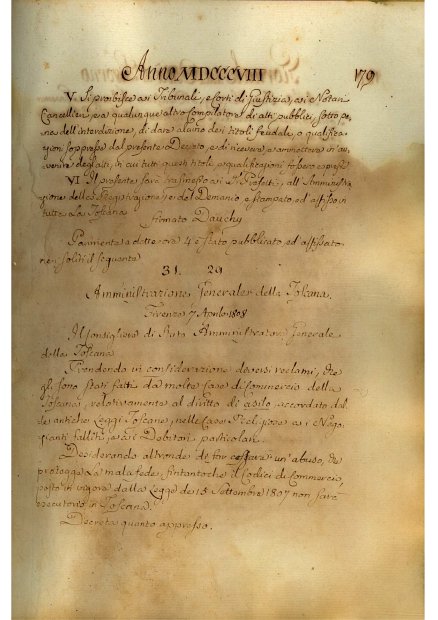 Anno MDCCCVIII 179
V. Si proibisce ai Tribunali, e Corti di Giustizia, ai Notari
Cancellieri, e a qualunque altro Compilatore di atti pubblici, sotto pe-
na dell'interdizione, di dare alcuno dei titoli feudali, o qualifica-
zioni soppresse dal presente Decreto, e di ricevere e ammettere in av-
venire degli atti, in cui tutti questi titoli e qualificazioni fossero espressi
VI Il presente sarà trasmesso ai Prefetti, all'Amministra-
zione della Registrazione, e del Demanio e stampato, ed affisso in
tutta la Toscana
firmato Dauchy
Parimente a dette ore 4 è stato pubblicato, ed affissato
nei soliti il seguente
31. 29
Amministrazione Generale della Toscana
Firenze 7 Aprile 1808
Il Consigliere di Stato Amministratore Generale
della Toscana
Prendendo in considerazione diversi reclami, che
gli sono stati fatti da molte Case di Commercio della
Toscana, relativamente al diritto di asilo accordato dal-
le antiche Leggi Toscane, nelle Case Religiose ai Nego-
zianti falliti, e ai Debitori particolari.
Desiderando altronde di far cessare un'abuso, che
protegge la mala fede, fintantoche il Codice di Commercio,
posto in vigore dalla Legge de 15 Settembre 1807 non sarà
esecutorio in Toscana.
Decreta quanto appresso.